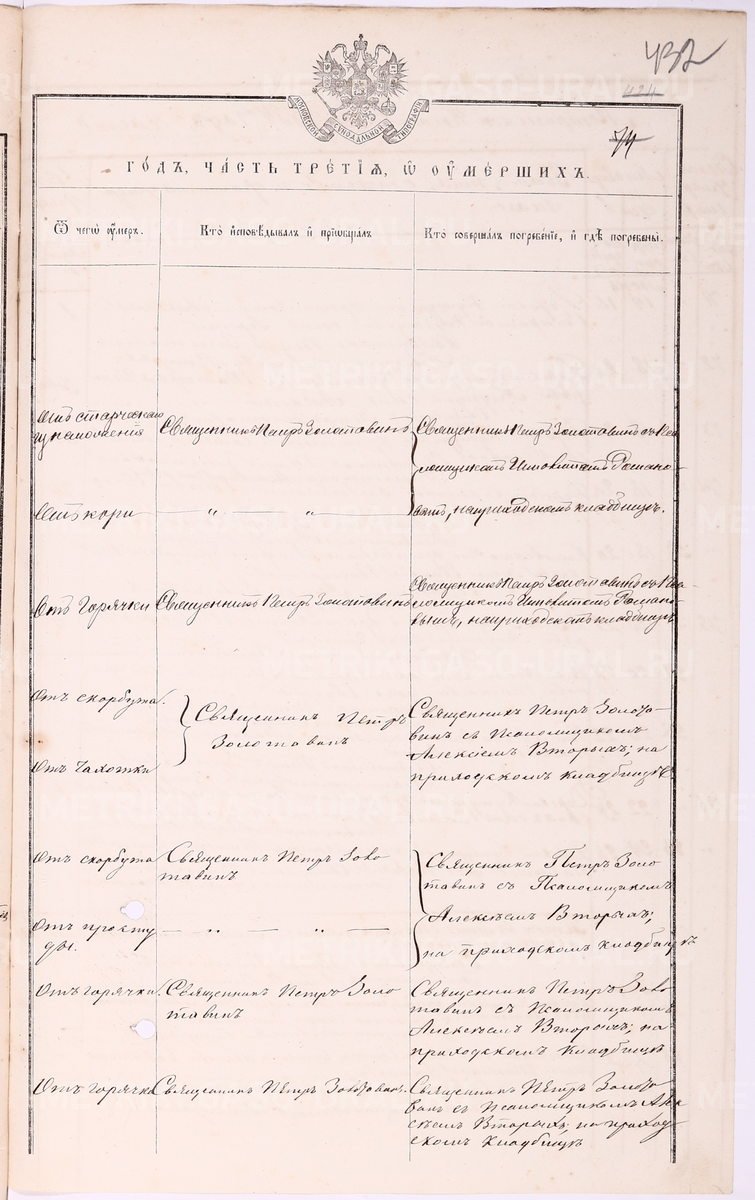 432
424
74
МОСКОВСКОЙ СѴНОДАЛЬНОЙ ТИПОГРАФІИ
ГО́ДЪ, ЧА́СТЬ ТРЕ́ТІѦ, Ѡ҆ ОУ҆МЕ́РШИХЪ.
Ѿ чегѡ̀ оу҆́меръ.
Кто̀ и҆сповѣ́дывалъ и҆ прїѡбща́лъ
Кто̀ соверша́лъ погребе́нїе, и҆ гдѣ̀ погребены̀.
Отъ старческаго
изнеможенія
Священникъ Петръ Золотавинъ
Священникъ Петръ Золотавинъ съ Пса
ломщикомъ Романо-
вымъ, на приходскомъ кладбищѣ.
Отъ кори
— „ — „ —
Отъ Горячки
Священникъ Петръ Золотавинъ
Священникъ Петръ Золотавинъ съ Пса
ломщикомъ Романо-
вымъ, на приходскомъ кладбищѣ
Отъ скорбута.
Отъ Чахотки
Священникъ Петръ
Золотавинъ
Священникъ Петръ Золота-
винъ съ Псаломщикомъ
Алексѣемъ Вторыхъ; на
приходскомъ кладбищѣ
Отъ скорбута
Священникъ Петръ Золо
тавинъ
Отъ просту
ды.
— „ — „ —
Священникъ Петръ Золо
тавинъ съ Псаломщикомъ
Алексѣемъ Вторыхъ;
на приходскомъ кладбищѣ
Отъ горячки.
Священникъ Петръ Золо
тавинъ
Священникъ Петръ Золо
тавинъ съ Псаломщикомъ
Алексѣемъ Вторыхъ; на
приходскомъ кладбищѣ
Отъ горячки
Священникъ Петръ Золотавинъ.
Священникъ Петръ Золота
винъ съ Псаломщикомъ Але
ксѣемъ Вторыхъ; на приход
скомъ кладбищѣ